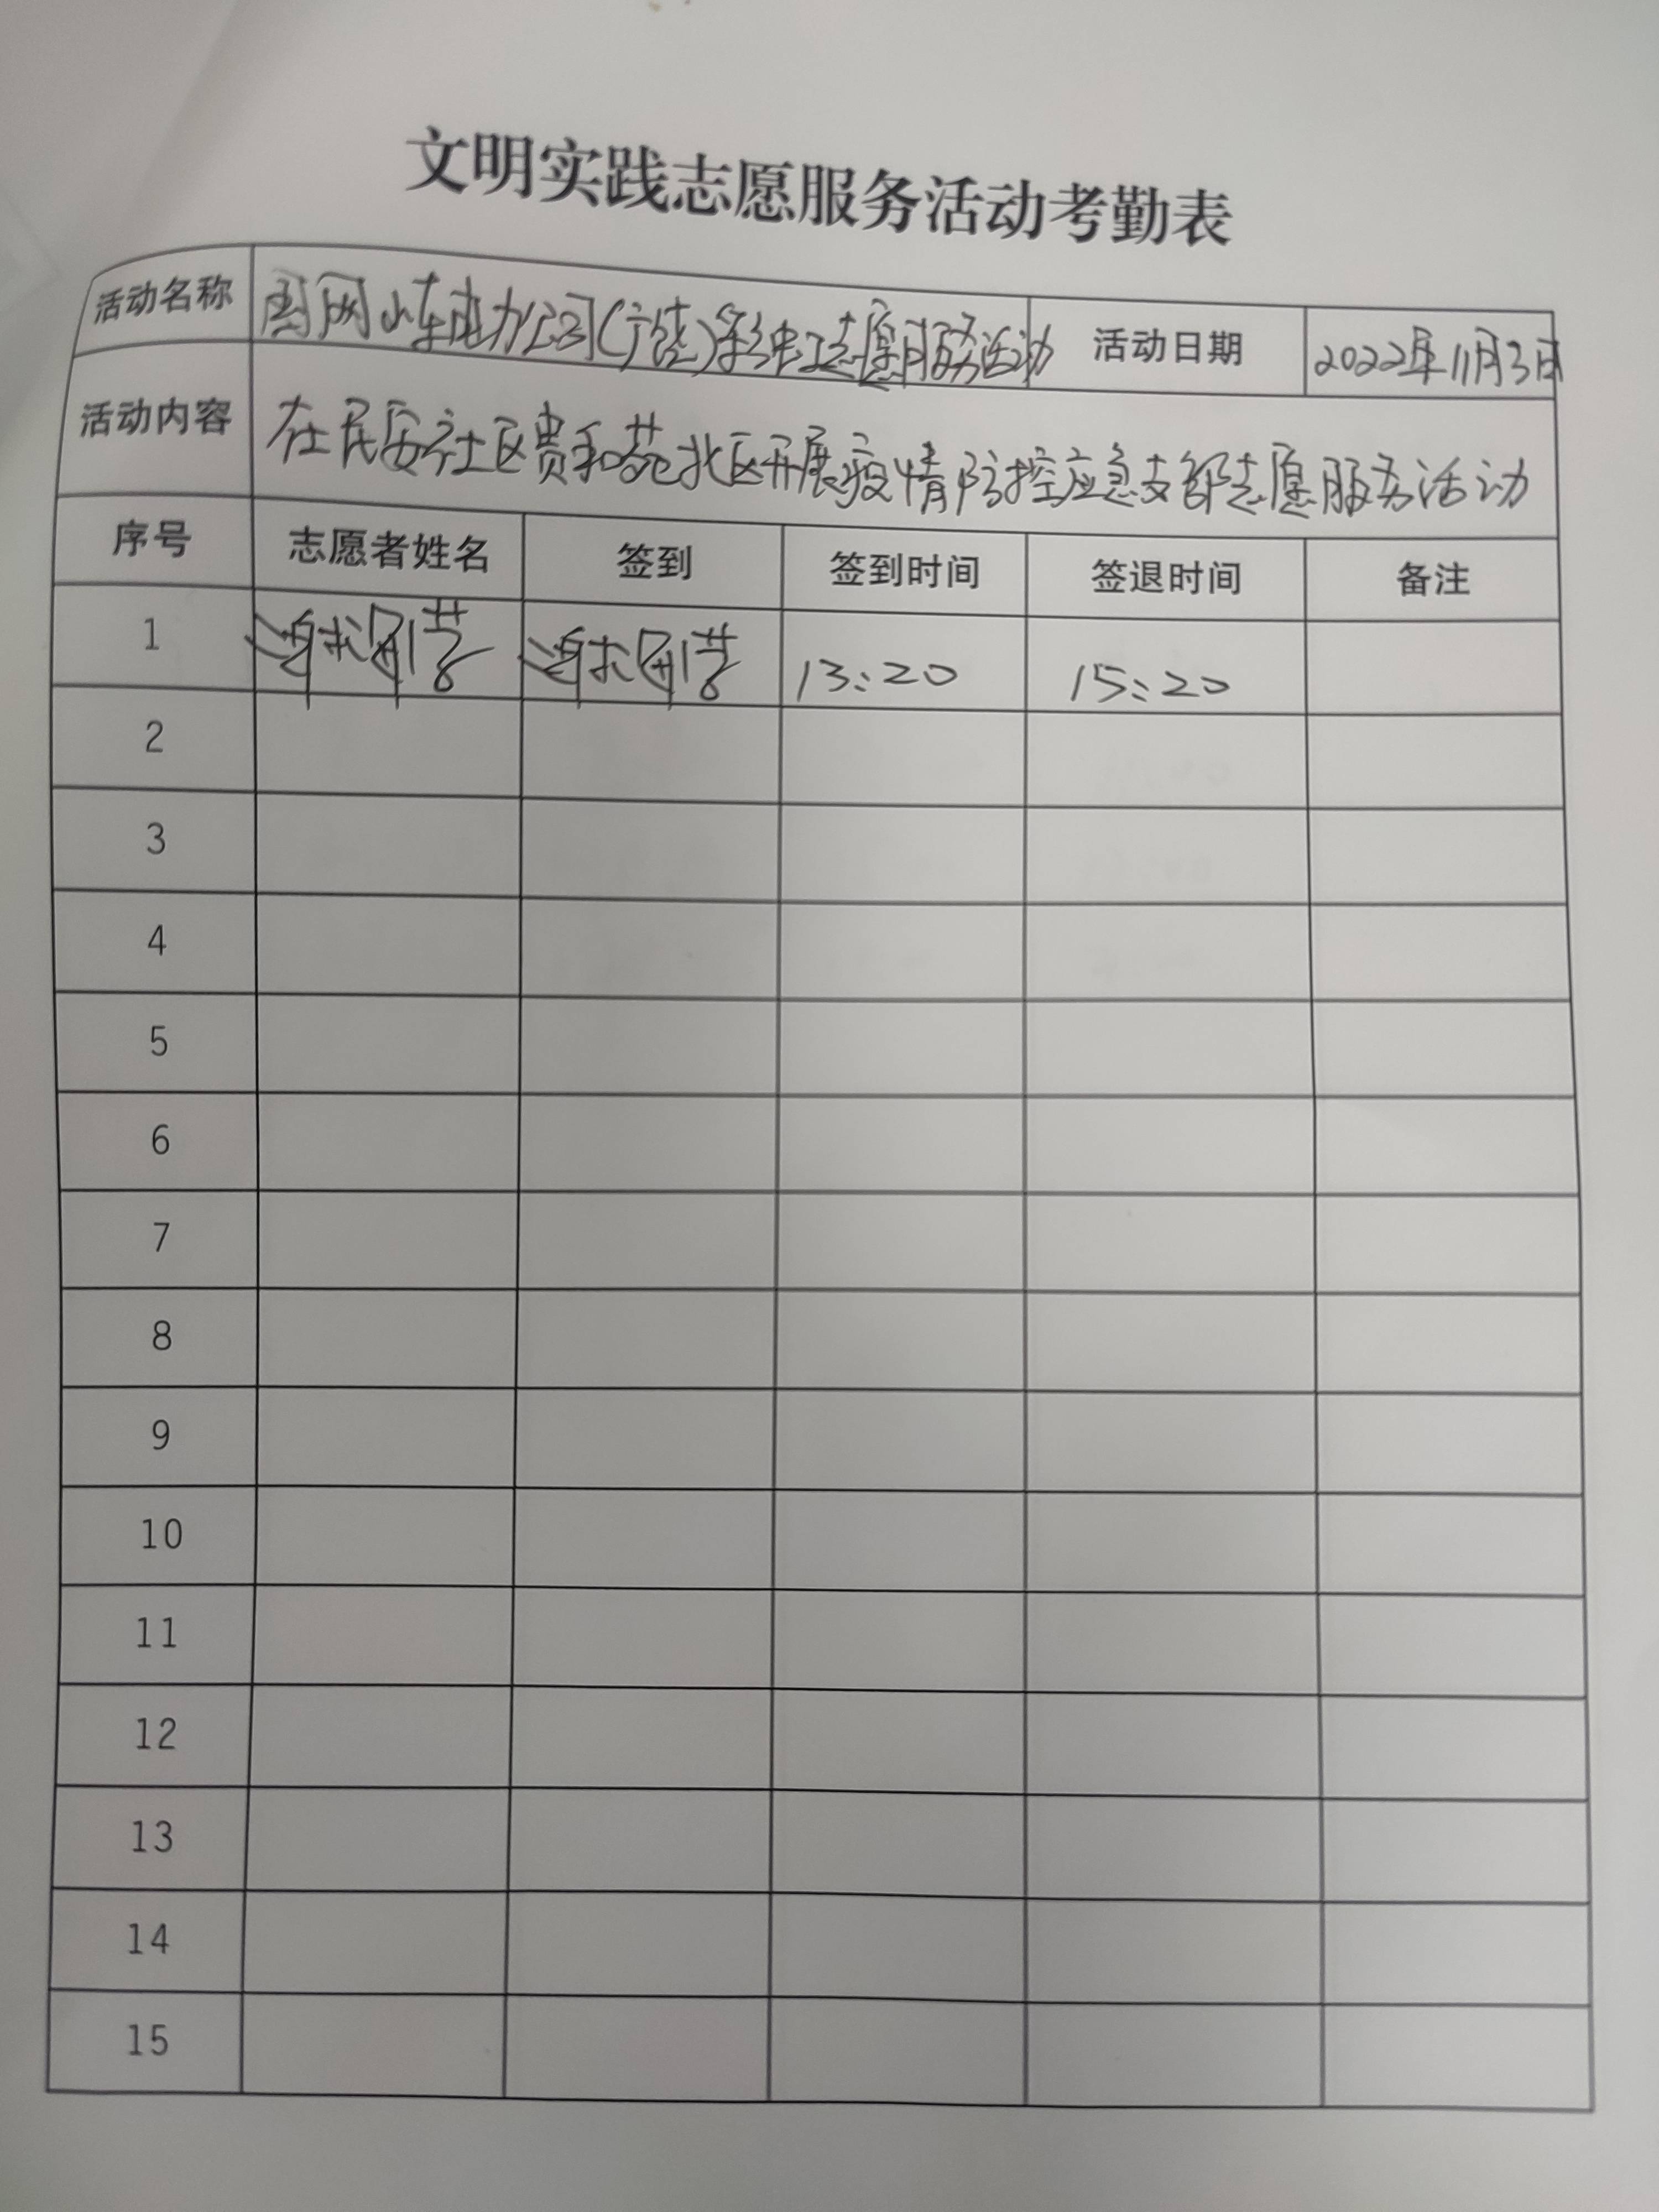 文明实践志愿服务活动考勤表
活动名称 国网山东电力公司(广饶)彩虹志愿服务活动 活动日期 2022年11月3日
活动内容 在民安社区贵和苑北区开展疫情防控应急支部志愿服务活动
序号 志愿者姓名 签到 签到时间 签退时间 备注
1 13:20 15:20
2
3
4
5
6
7
8
9
10
11
12
13
14
15